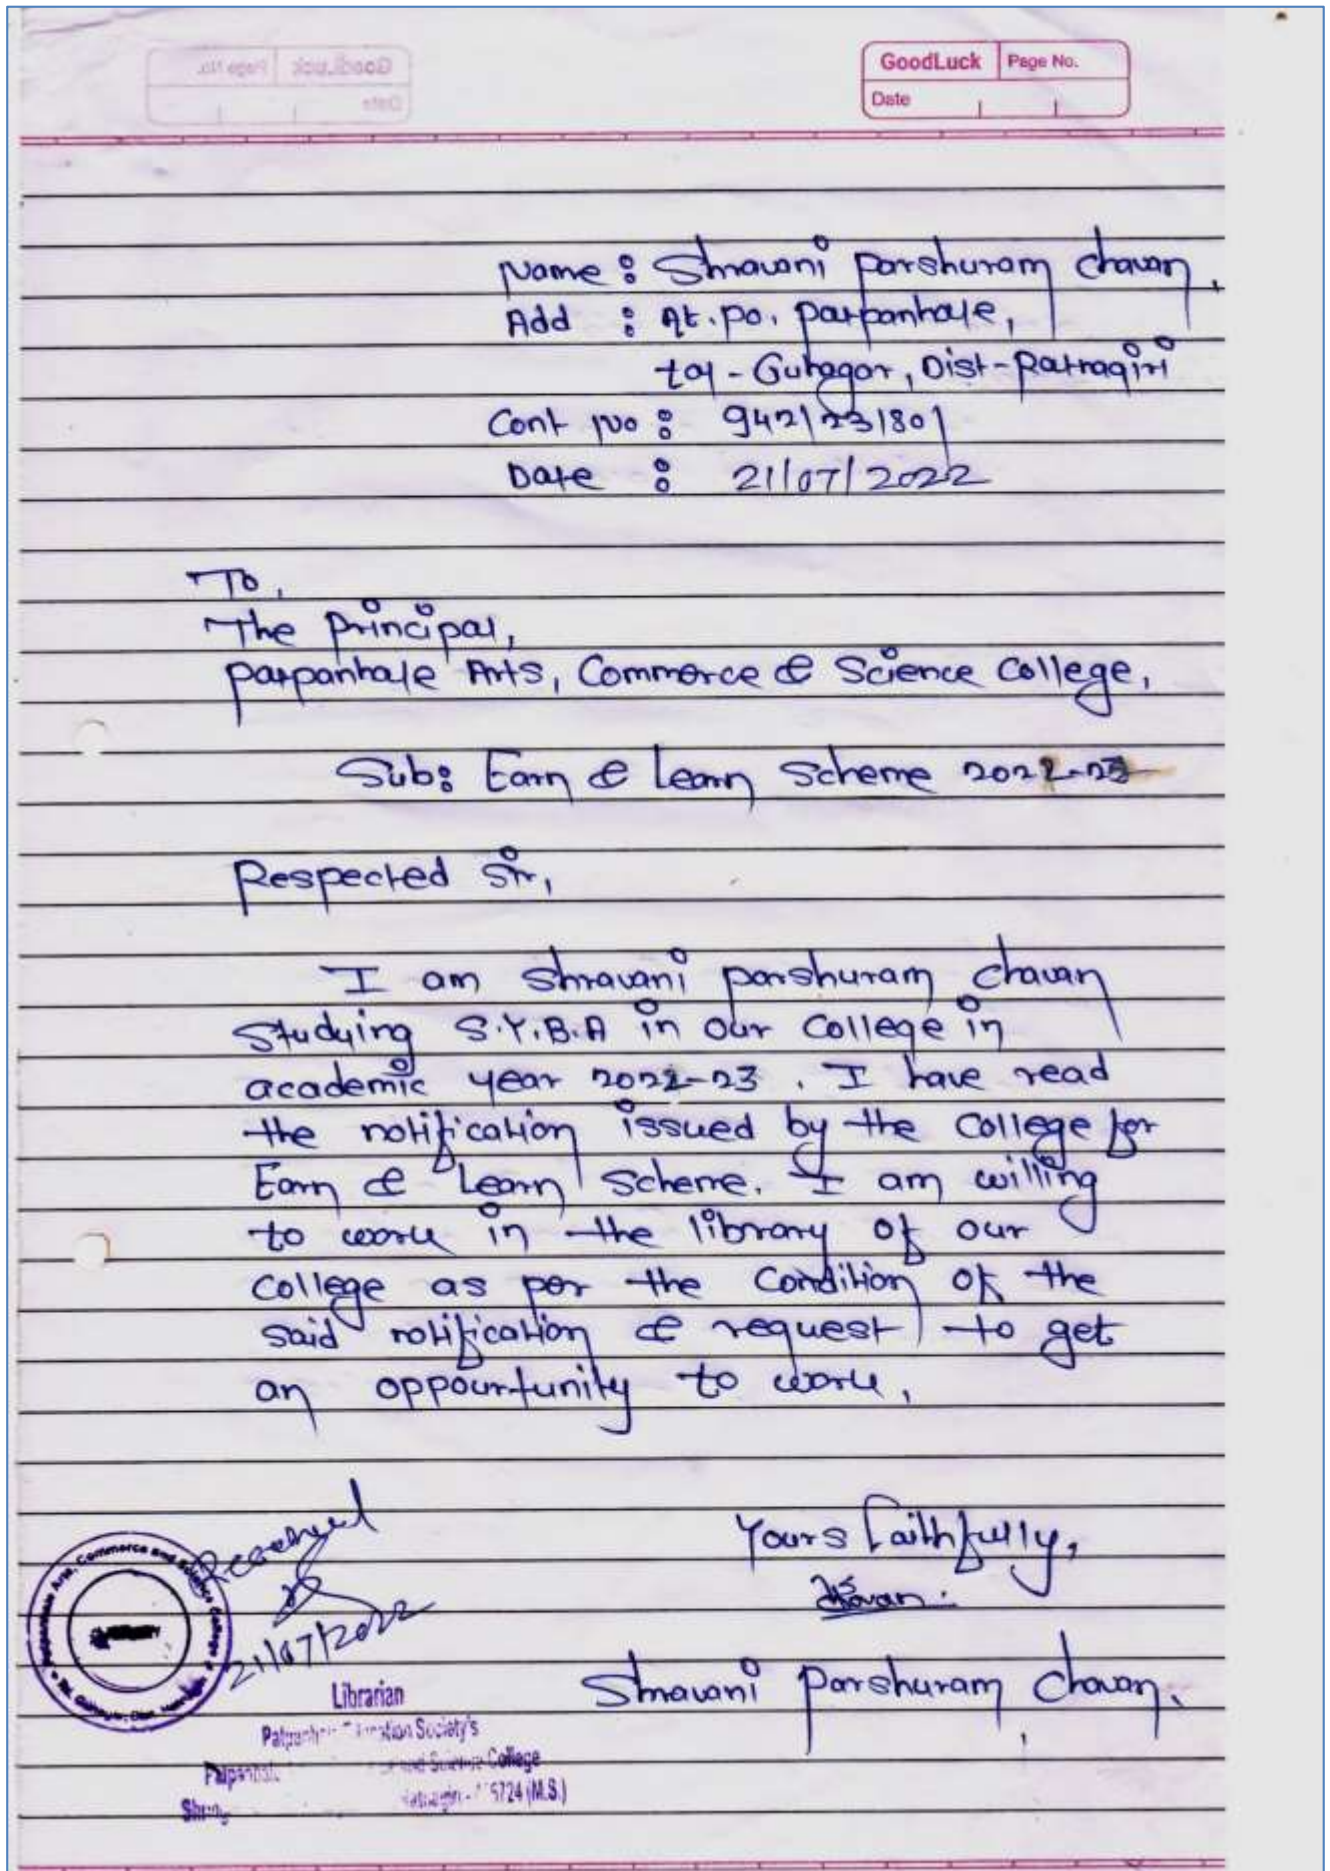 GoodLuck Page No.
Date
Name : Shravani Parshuram Chavan,
Add : At. po. patpanhale,
tal - Guhagar, Dist - Ratnagiri
Cont No : 9421231801
Date : 21/07/2022
To,
The Principal,
patpanhale Arts, Commerce & Science College,
Sub: Earn & Learn Scheme 2022-23
Respected Sir,
I am Shravani parshuram chavan
studying S.Y.B.A in our College in
academic year 2022-23. I have read
the notification issued by the College for
Earn & Learn Scheme. I am willing
to work in the library of our
college as per the Condition of the
said notification & request to get
an oppourtunity to work,
Yours faithfully,
Chavan.
Shravani Parshuram Chavan.
Received
21/07/2022
Librarian
Education Society's
and Science College
(M.S.)
Arts, Commerce and Science College